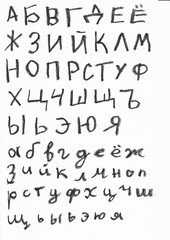 АБВГДЕЁ
ЖЗИЙКЛМ
НОПРСТУФ
ХЦЧШЩЪ
ЫЬЭЮЯ
абвгдеёж
зийклмноп
рстуфхцчш
щъыьэюя